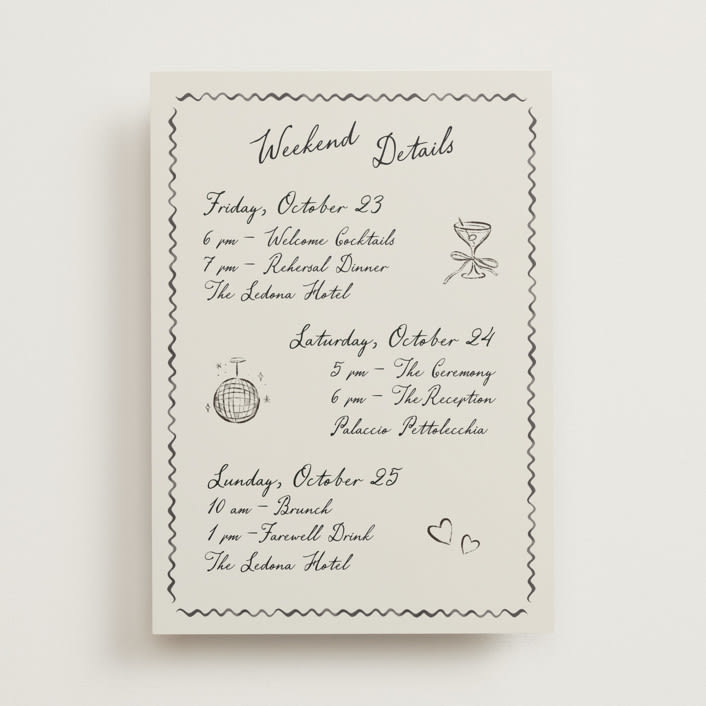 Weekend Details
Friday, October 23
6 pm – Welcome Cocktails
7 pm – Rehersal Dinner
The Ledona Hotel
Saturday, October 24
5 pm – The Ceremony
6 pm – The Reception
Palaccio Pettolecchia
Sunday, October 25
10 am – Brunch
1 pm –Farewell Drink
The Ledona Hotel